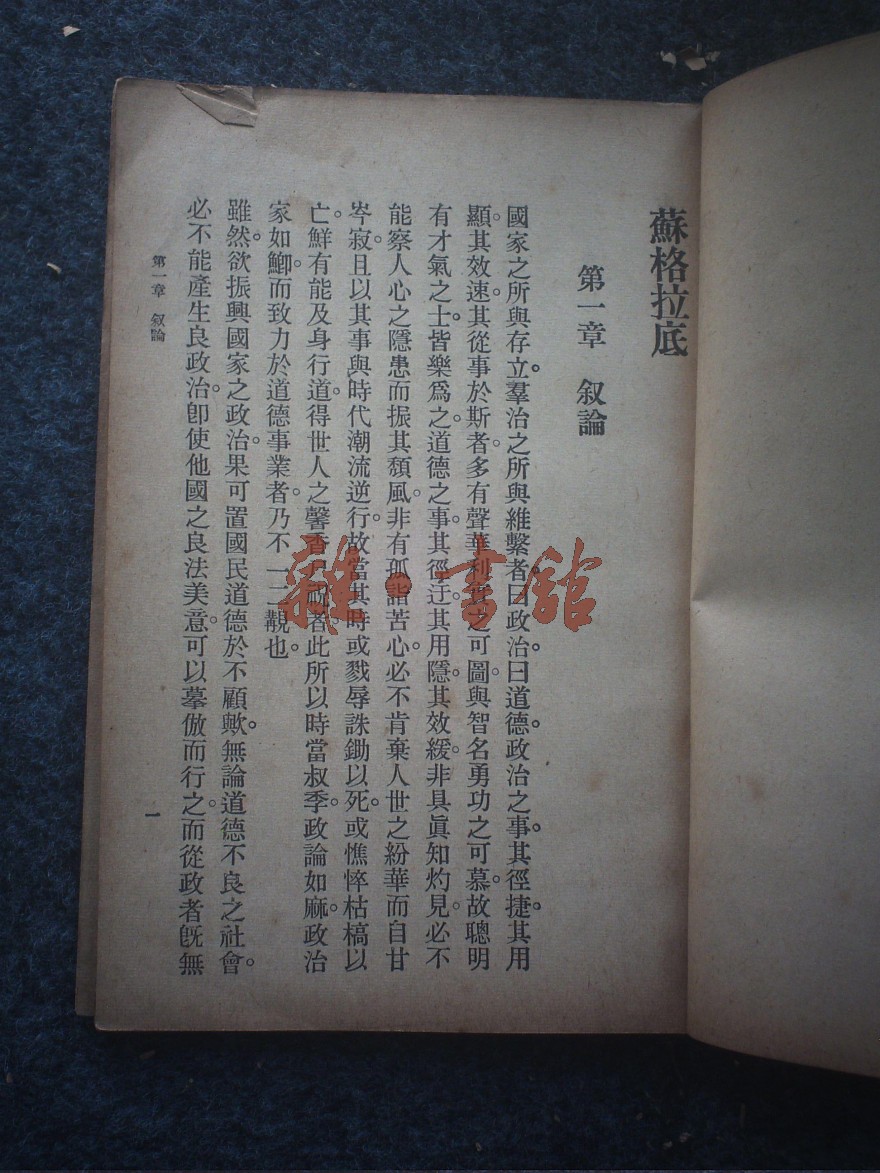 蘇格拉底
第一章 叙論
國家之所與存立。羣治之所與維繫者。曰政治。曰道德。政治之事。其徑捷。其用
顯。其效速。其從事於斯者。多有聲華利之可圖。與智名勇功之可慕。故聰明
有才氣之士。皆樂爲之。道德之事。其徑迂。其用隱。其效緩。非具眞知灼見。必不
能察人心之隱患。而振其頹風。非有孤詣苦心。必不肯棄人世之紛華。而自甘
岑寂。且以其事與時代潮流逆行。故當其時。或戮辱誅鋤以死。或憔悴枯槁以
亡。鮮有能及身行道。得世人之馨香祝者。此所以時當叔季。政論如麻。政治
家如鯽。而致力於道德事業者。乃不一二覯也。
雖然。欲振興國家之政治。果可置國民道德於不顧歟。無論道德不良之社會。
必不能產生良政治。卽使他國之良法美意。可以摹倣而行之。而從政者旣無
第一章 叙論
一
雜·書館